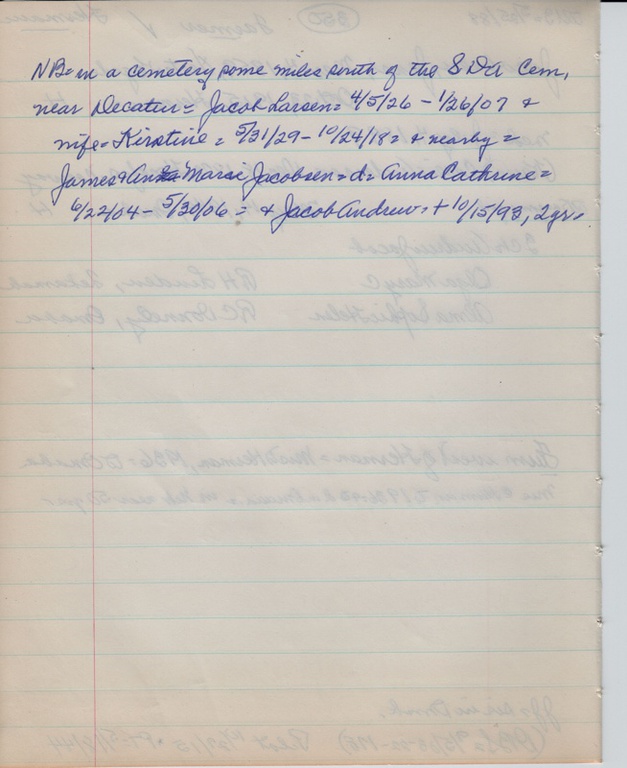 NB= in a cemetery some miles south of the SDA Cem,
near Decatur= Jacob Larsen= 4/5/26 - 1/26/07 &
wife= Kirstine = 5/31/29 - 10/24/18= & nearby =
James & Marie Jacobsen= d= Anna Cathrine=
6/22/04 - 5/30/06 = & Jacob Andrew= + 10/15/93, 2 yrs=